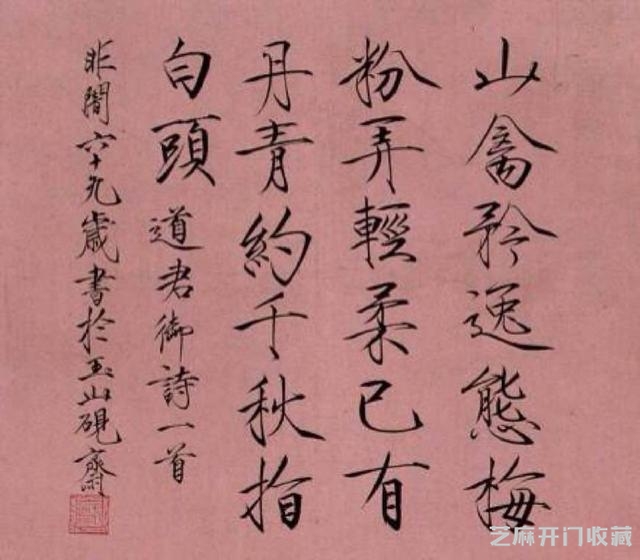 山禽矜逸態梅
粉弄輕柔已有
丹青約千秋指
白頭道君御詩一首
非闇六十九歲書於玉山硯齋
芝麻开门收藏